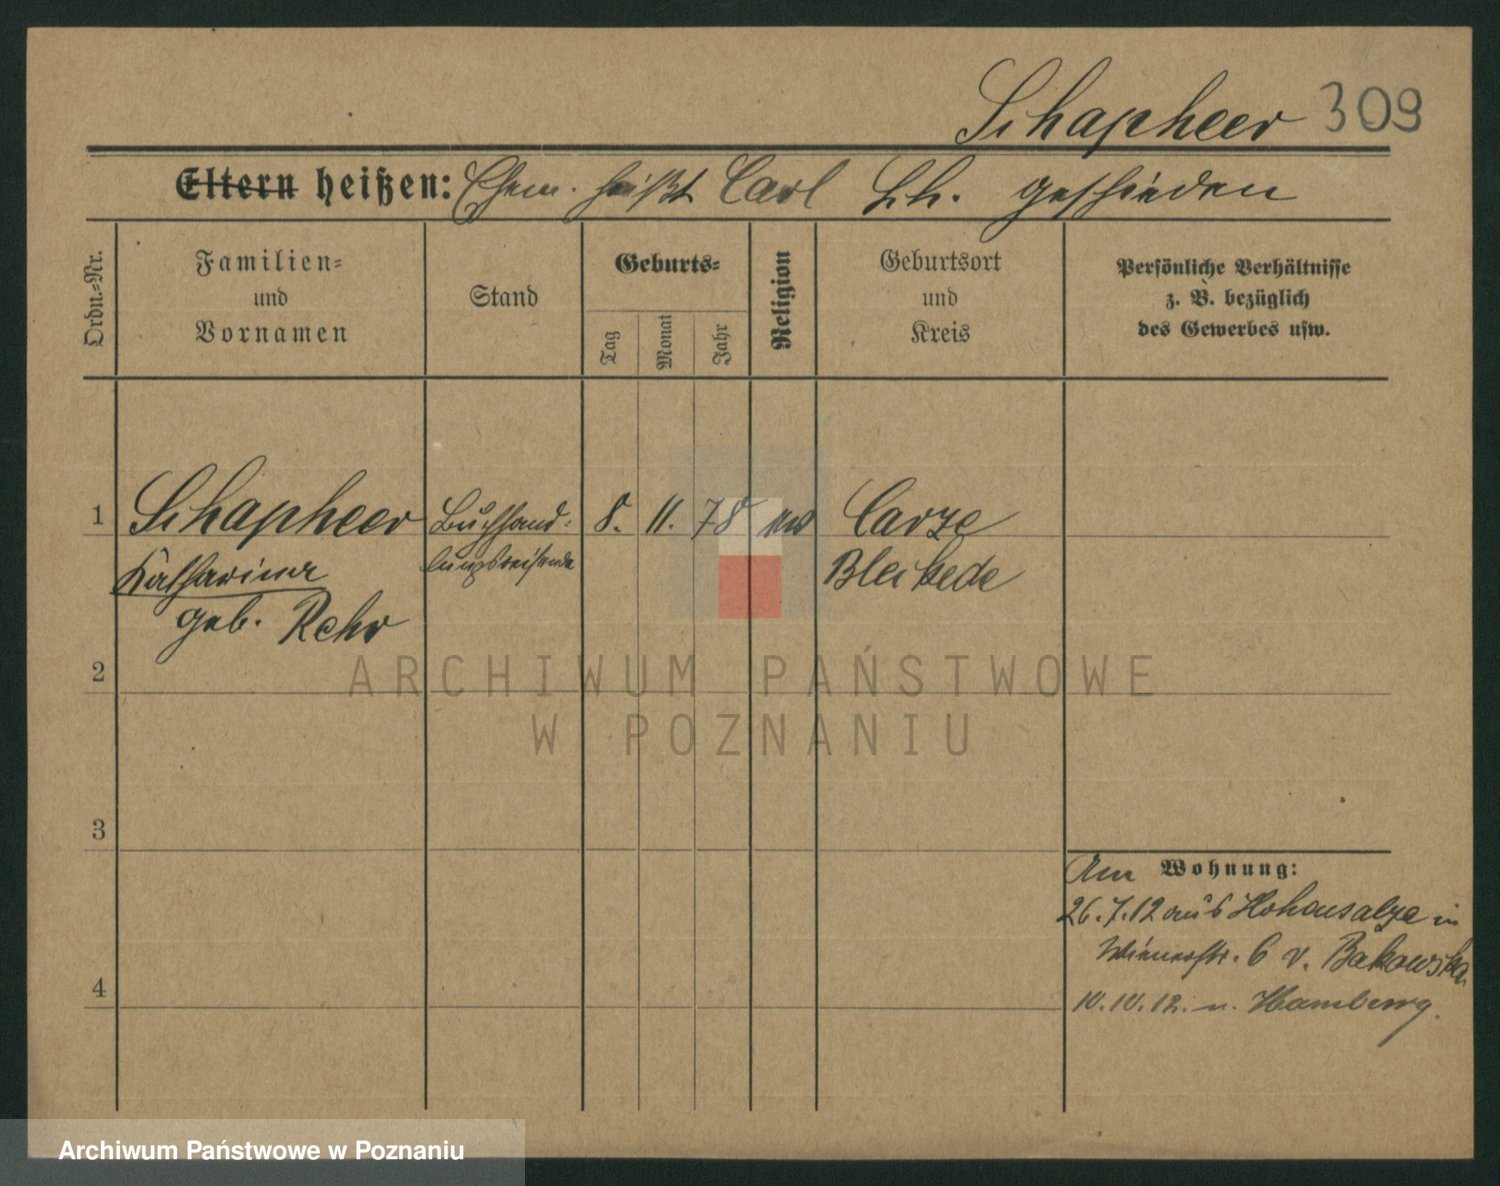 Schapheer 309
Eltern heißen: Ehem. heißt Carl Sch. geschieden
Ordn.-Nr.
Familien-
und
Vornamen
Stand
Geburts-
Tag
Monat
Jahr
Religion
Geburtsort
und
Kreis
Persönliche Verhältnisse
z. B. bezüglich
des Gewerbes usw.
1 Schapheer Buchhand- 8. 11. 78 Carze
Katharina lungsreisende Bleckede
geb. Rehr
2
ARCHIWUM PAŃSTWOWE
W POZNANIU
3
Am Wohnung:
26.7.12 aus Hohensalza in
Wienerstr. 6 v. Bakowska
4
10.10.12. n. Hamburg.
Archiwum Państwowe w Poznaniu